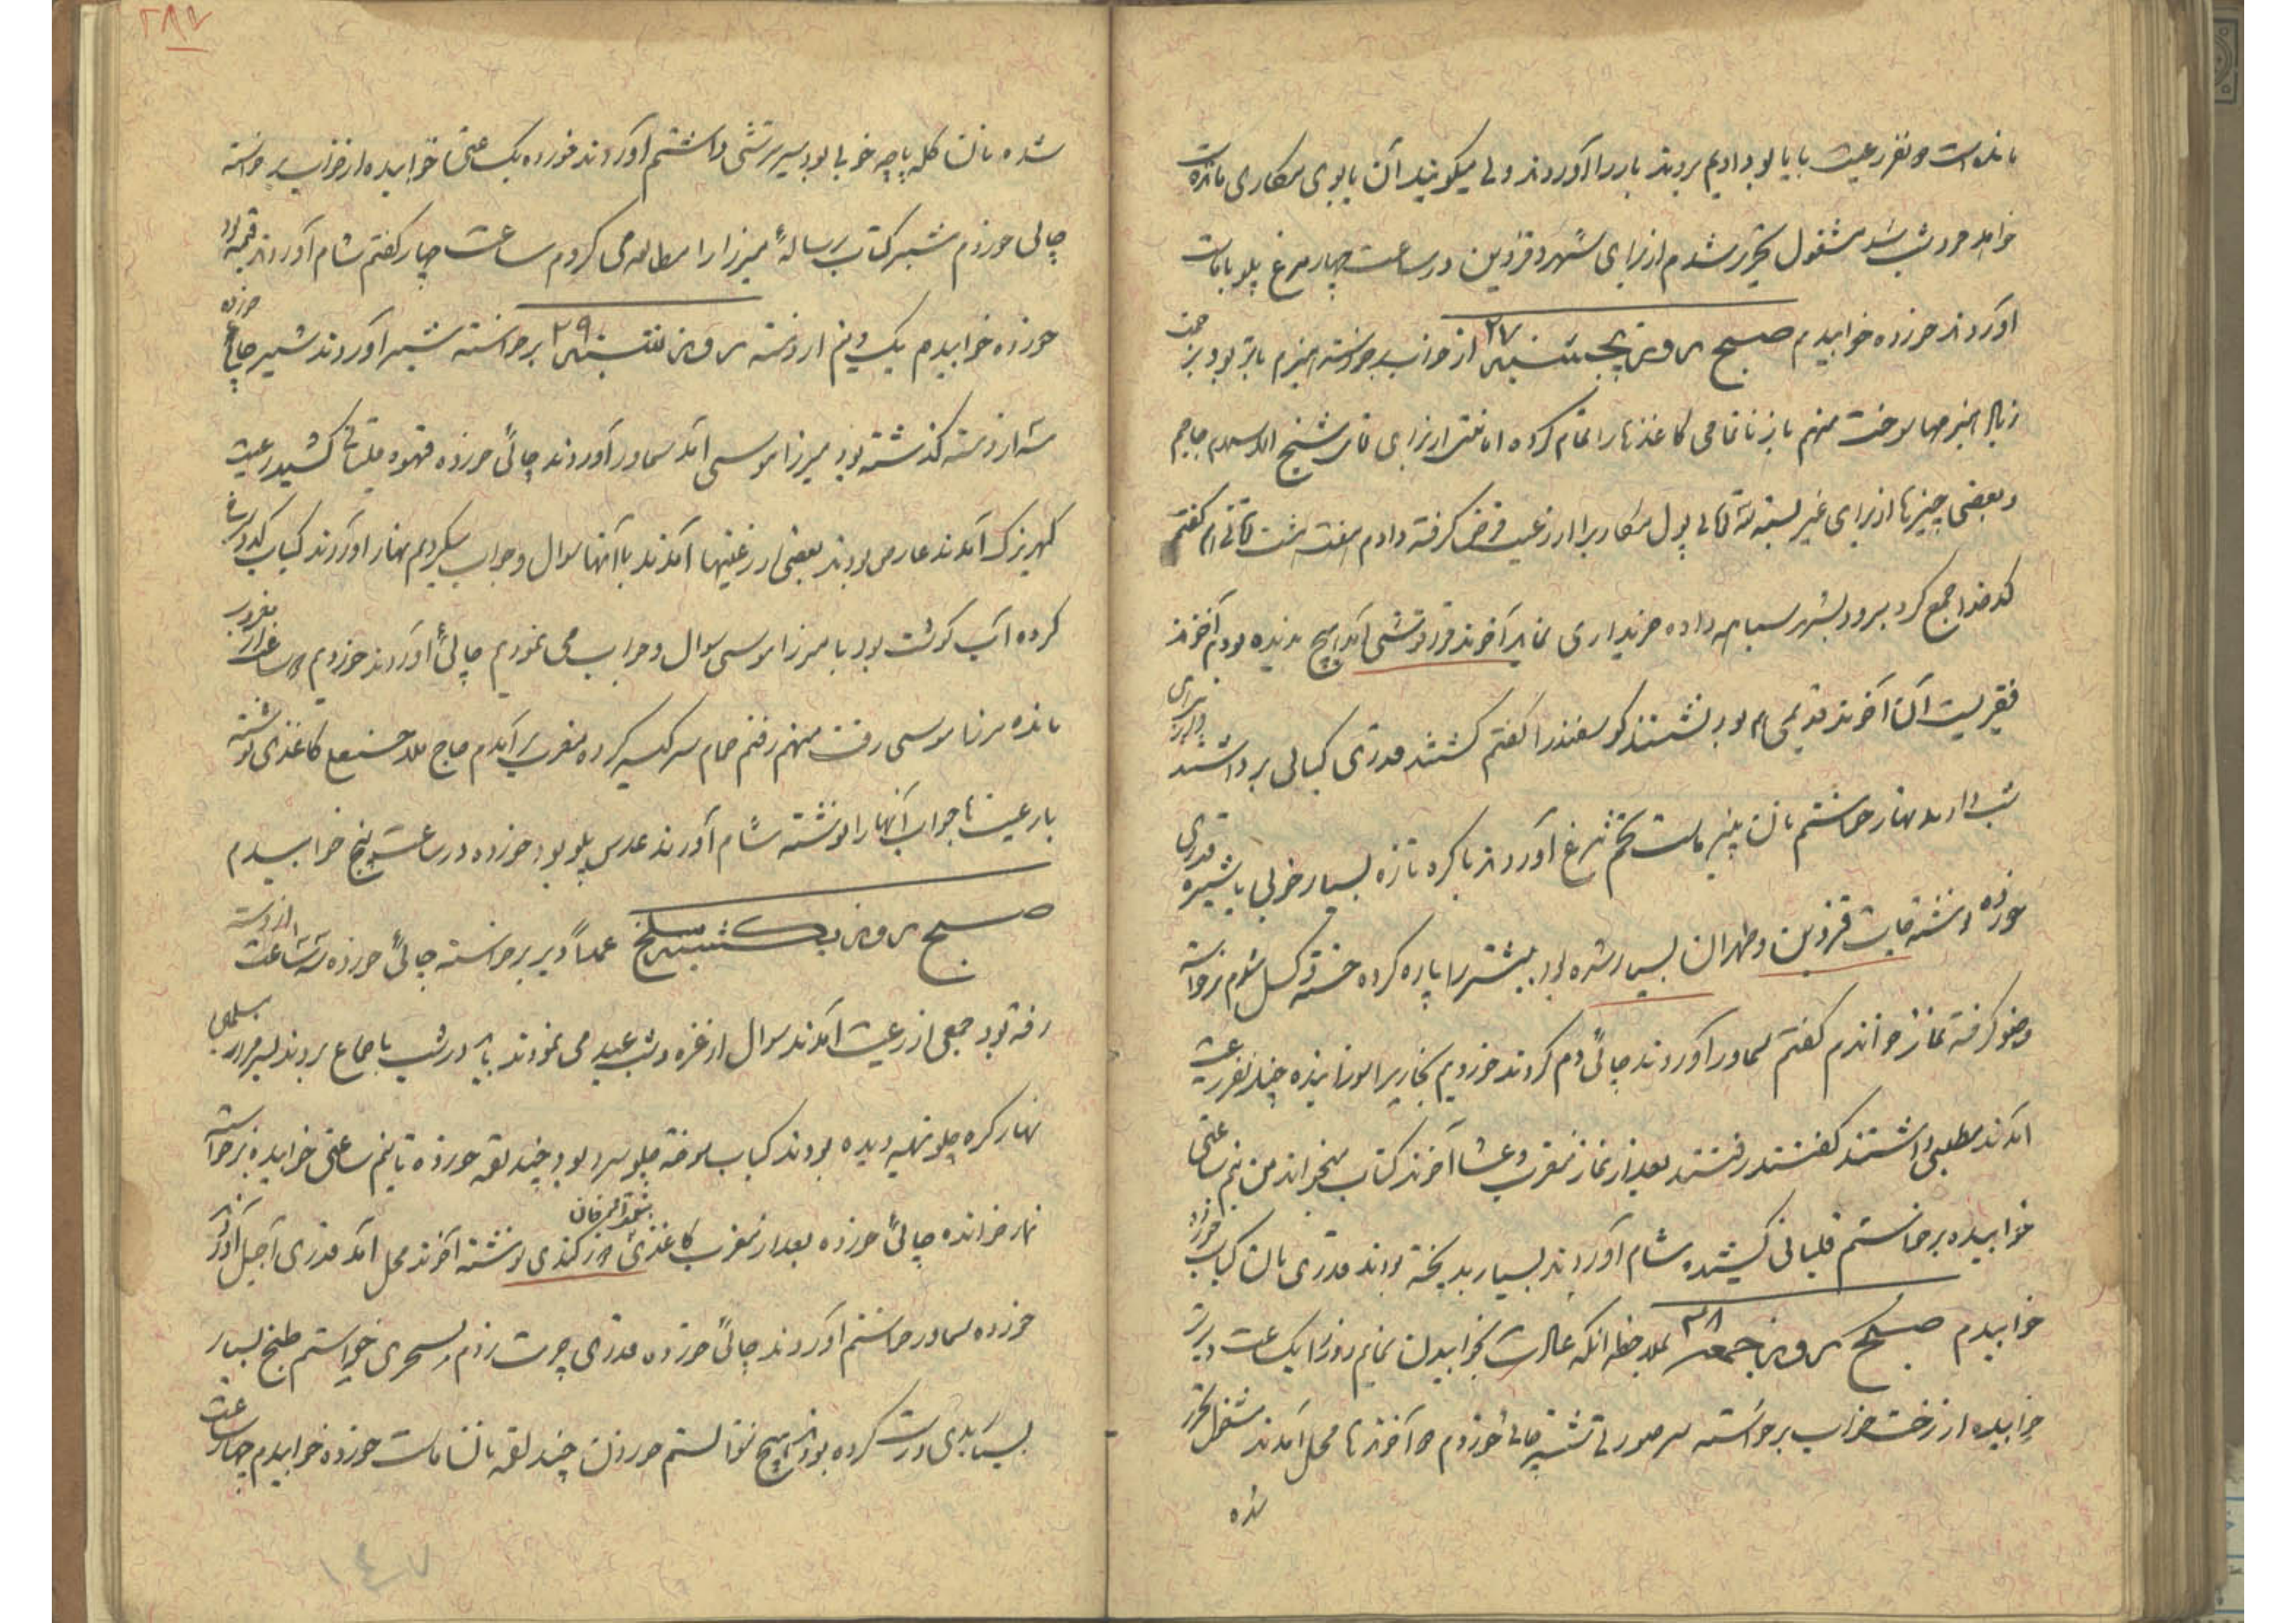 مانده است دو نفر رعیت با یابو دادیم بردند بار را آوردند ولی میگویند آن یابوی مکاری مانده است
خوابد خود شب شد مشغول تحریر شدم از برای شهر و قزوین در ساعت چهار مرغ پلو با ماست
آوردند خورده خوابیدم صبح روز پنجشنبه ۲۷ از خواب برخواسته هیزم تر بود بزحمت
زیاد هیزمها سوخت منهم تمامی کاغذها را تمام کرده امانتی از برای شیخ
و بعضی چیزها از برای غیر بسته سه تومان پول مکاری را از رعیت قرض گرفته دادم هفت هشت تومانی هم گفتم
کدخدا جمع کرد برود بشهر سیاهه داده خریداری نماید آخوند قزوتشی آمد هیچ ندیده بودم آخوند
فقیریست آن آخوند قدیمی هم بود نشستند گوسفند را گفتم کشتند قدری کبابی برداشتند از برای
شب نهار خواستم نان پنیر ماست تخم مرغ آوردند با کره تازه بسیار خوبی با شیره قدری
خورده نوشتجات قزوین و طهران بسیار شده بود بیشتر را پاره کرده خسته و کسل شدم برخواسته
وضو گرفته نماز خواندم گفتم سماور آوردند چائی دم کردند خوردیم بخاری را سوزانیده چند نفر رعیت
آمدند مطلبی داشتند گفتند رفتند بعد از نماز مغرب و عشا آخوند کتاب میخواند من نیم ساعتی
خوابیده برخاستم قلیانی کشیده شام آوردند بسیار بد پخته بودند قدری نان کباب خورده
خوابیدم صبح روز جمعه ۲۸ بملاحظه آنکه عادت بخوابیدن نمایم روز را یک ساعت دیرتر
خوابیده از رختخواب برخواسته سر صورتی شسته چائی خوردم دو آخوندها محل آمدند مشغول تحریر
شده
۲۸۷
شده نان کله پاچه خوبی بود سیر ترشی داشتم آوردند خورده یک ساعتی خوابیده از خواب برخواسته
چائی خوردم شب کتاب رساله میرزا را مطالعه می کردم ساعت چهار گفتم شام آوردند قیمه پلو
خورده خوابیدم یک و نیم از دسته روز شنبه ۲۹ برخواسته شیر آوردند شیر چائی خورده
سه از دسته گذشته بود میرزا موسی آمد سماور آوردند چائی خورده قهوه قلیانی کشیده رعیت
کهریزک آمدند عارض بودند بعضی از رعیتها آمدند با آنها سوال و جواب میکردیم نهار آوردند کباب کدو
کرده آب گوشت بود با میرزا موسی سوال و جواب می نمودیم چائی آوردند خوردیم دو ساعت از مغرب
مانده میرزا موسی رفت منهم رفتم حمام سر کیسه کرده مغرب برآمدم حاج ملا حسنعلی کاغذی نوشته
با رعیت تا جواب آنها را نوشته شام آوردند عدس پلو بود خورده در ساعت پنج خوابیدم
صبح روز یکشنبه سلخ عمداً دیر برخواسته چائی خورده سه ساعت از دسته
رفته بود جمعی از رعیت آمدند سوال از غره و شب عید می نمودند در شب با جماع بردند
نهار کره چلو تهیه دیده بودند کباب سوخته چلو سرد بود چند لقمه خورده تا نیم ساعتی خوابیده برخواسته
نماز خوانده چائی خورده بعد از مغرب کاغذی ور کندی نوشته آخوند محل آمد قدری آجیل آوردند
خورده سماور خواستم آوردند چائی خورده قدری چرت زدم سحری خواستم طبخ بسیار
بسیار بدی درست کرده بودند هیچ نتوانستم خوردن چند لقمه نان ماست خورده خوابیدم چهار ساعت
۱۴۷